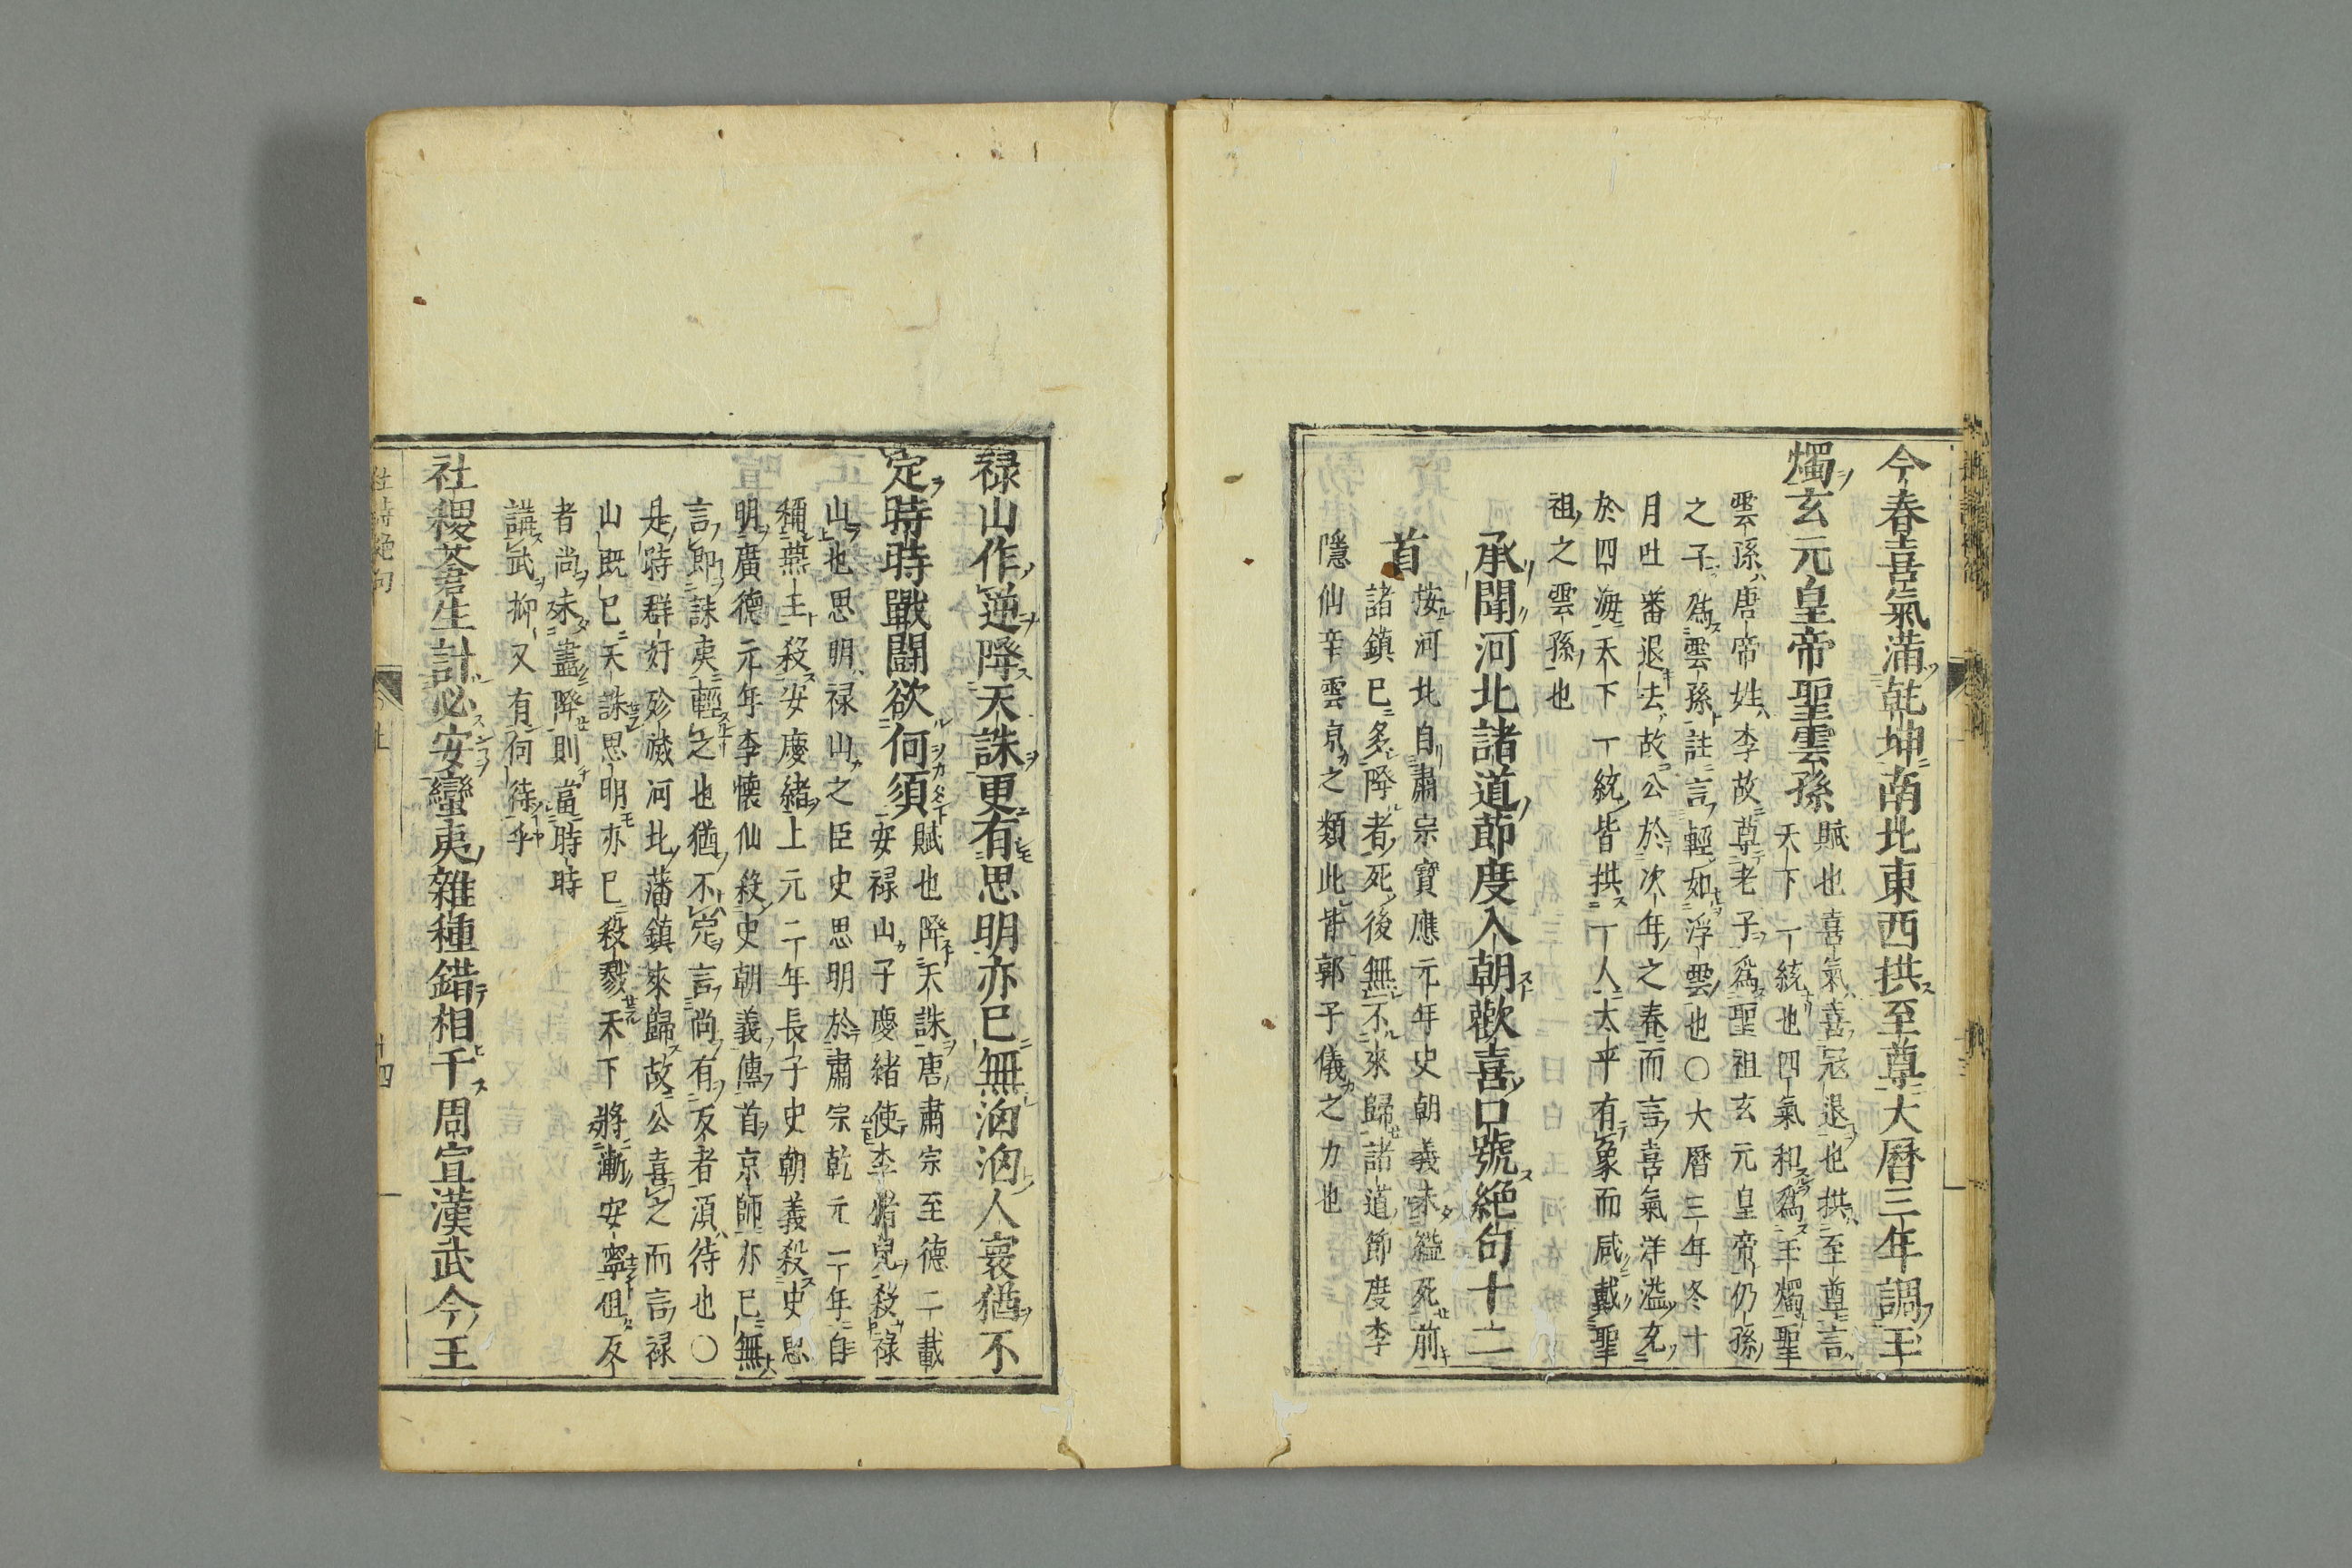 今春喜氣満乾坤南北東西拱至尊大曆三年調玉
燭玄元皇帝聖雲孫
賦也喜氣喜冦退也拱至尊言
天下一統也四氣和為玉燭聖
雲孫唐帝姓李故尊老子為聖祖玄元皇帝仍孫
之子為雲孫註言輕如浮雲也〇大曆三年冬十
月吐蕃退去故公於次年之春而言喜氣洋溢充
於四海天下一統皆拱一人太平有象而咸戴聖
祖之雲孫也
承聞河北諸道節度入朝歡喜口號絶句十二
首
按河北自肅宗寶應元年史朝義未縊死前
諸鎮已多降者死後無不來歸諸道節度李
隱仙辛雲京之類此皆郭子儀之力也
禄山作逆降天誅更有思明亦已無洶洶人寰猶不
定時時戰鬪欲何須
賦也降天誅唐肅宗至德二載
安禄山子慶緒使李猪兒殺禄
山也思明禄山之臣史思明於肅宗乾元二年自
稱燕王殺安慶緒上元二年長子史朝義殺史思
明廣德元年李懐仙殺史朝義傳首京師亦已無
言即誅夷輕之也猶不定言尚有反者須待也〇
是時群奸殄滅河北藩鎮來歸故公喜之而言禄
山既已天誅思明亦已殺戮天下將漸安寧但反
者尚未盡降則當時時
講武抑又有何待乎
社稷蒼生計必安蠻夷雜種錯相干周宣漢武今王
杜詩絶句
十四